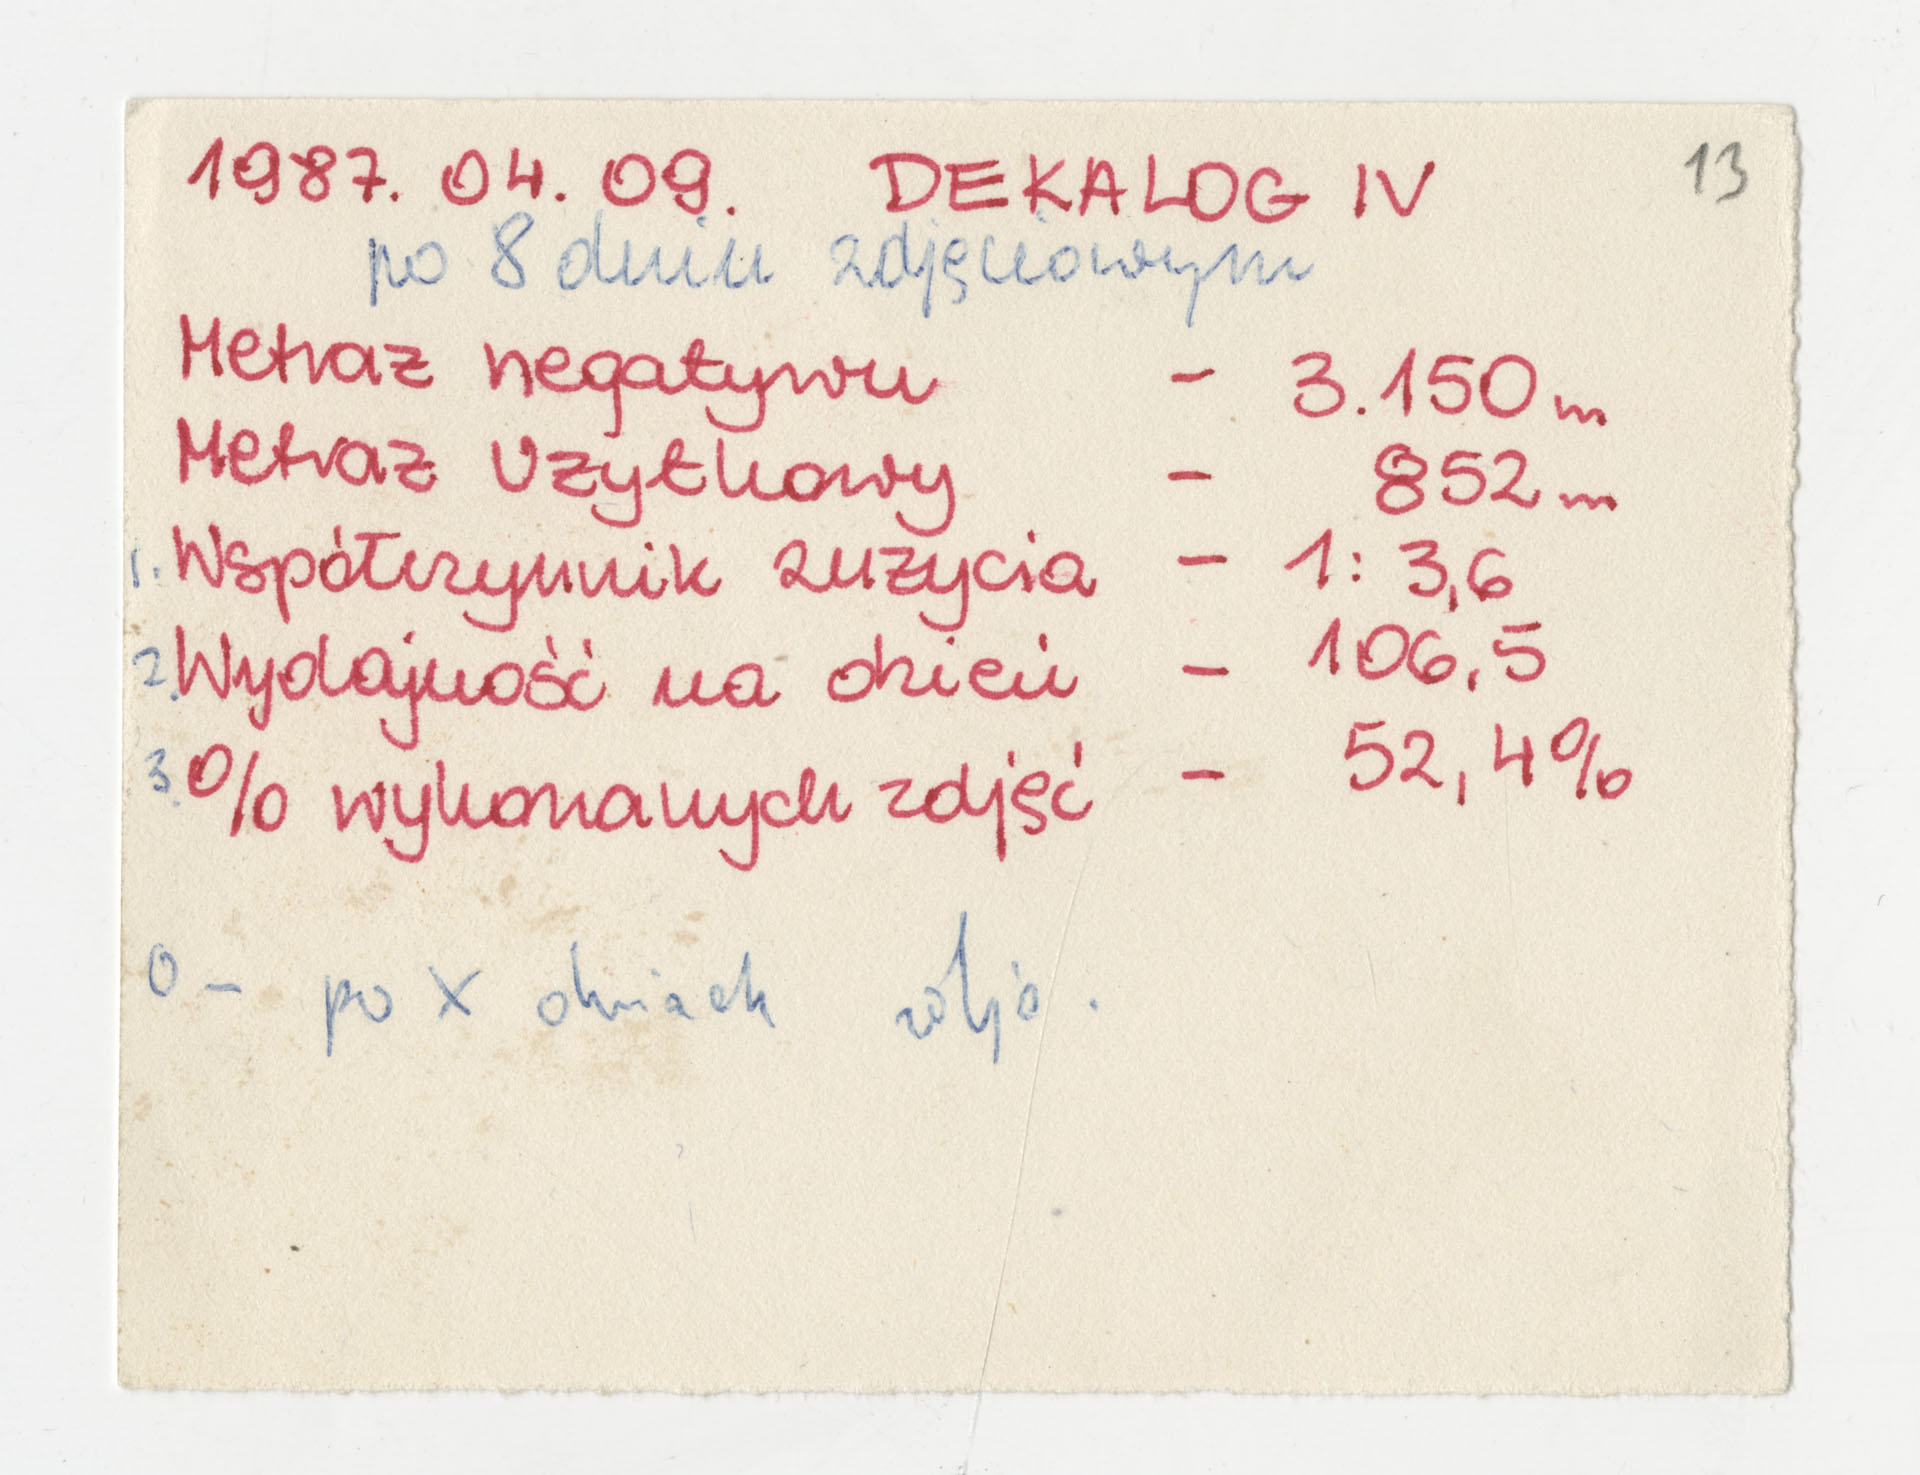 1987. 04. 09. DEKALOG IV 13
po 8 dniu zdjęciowym
Metraż negatywu - 3.150 m
Metraż użytkowy - 852 m
1. Współczynnik zużycia - 1: 3,6
2. Wydajność na dzień - 106,5
3. % wykonanych zdjęć - 52,4%
0 - po X dniach zdję.